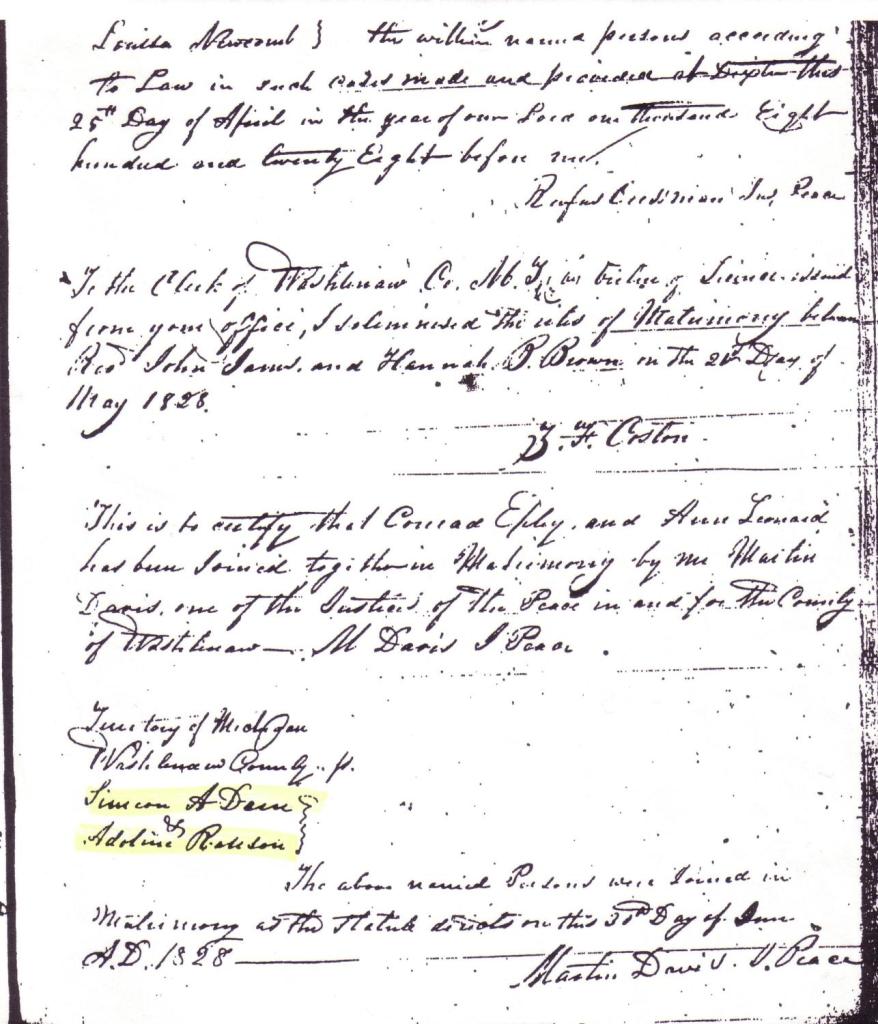 Louisa Newcomb } the within named persons according
to Law in such cases made and provided at Dexter this
25th Day of April in the year of our Lord one thousand Eight
hundred and twenty Eight before me.
Rufus Crossman Jus, Peace
To the Clerk of Washtenaw Co. M. T. in virtue of License issued
from your office, I solemnised the rites of Matrimony between
Revd John James, and Hannah P. Brown on the Day of
May 1828.
Z. H. Coston
This is to certify that Conrad Epley, and Ann Leonard
has been Joined together in Matrimony by me Martin
Davis, one of the Justices of the Peace in and for the County
of Washtenaw — M Davis J Peace
Territory of Michigan
Washtenaw County . ss.
Simeon A Dean }
& 
Adoline Rawson }
The above named Persons were Joined in
Matrimony as the Statute directs on this 30th Day of June
A.D. 1828 —
Martin Davis . J. Peace